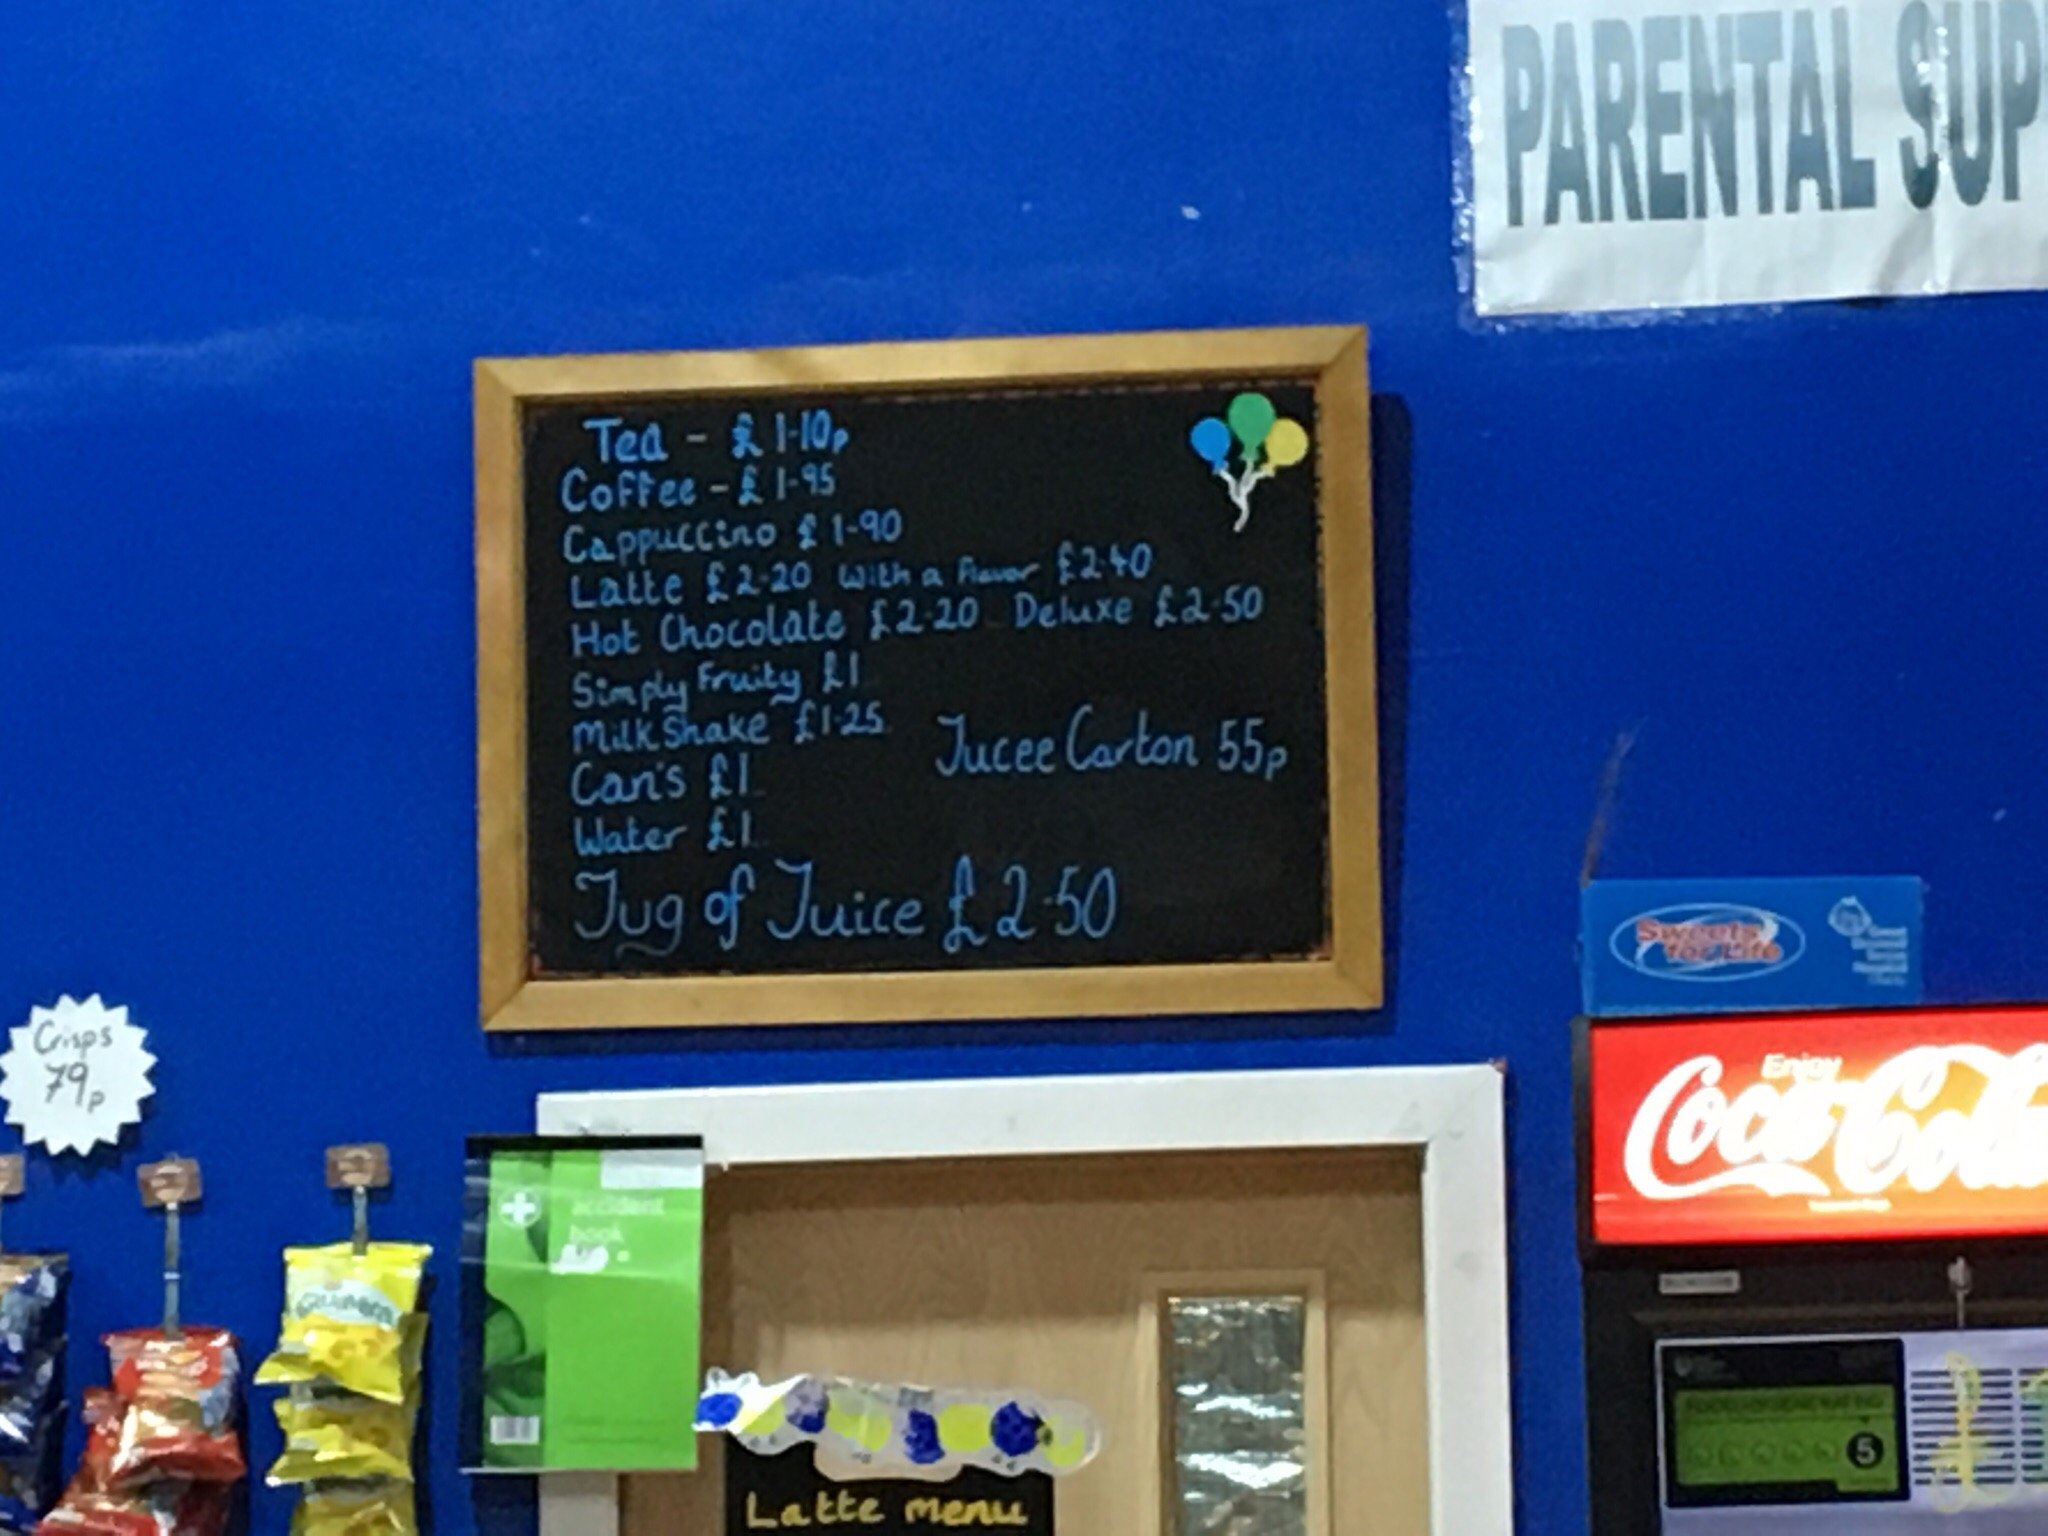 PARENTAL SUP
Tea - £1.10p
Coffee - £1-95
Cappuccino £1-90
Latte £2.20 With a Flavor £2.40
Hot Chocolate £2.20 Deluxe £2.50
Simply Fruity £1
Milkshake £1.25
Jucee Carton 55p
Can's £1
Water £1
Jug of Juice £2.50
Sweets
for Life
Crisps
79p
Enjoy
Coca-Cola
accident
book
FOOD HYGIENE RATING
5
Latte menu